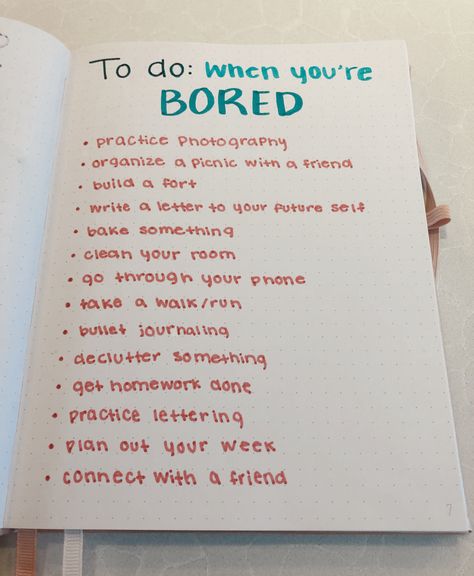 To do: when you're
BORED
• practice photography
• organize a picnic with a friend
• build a fort
• write a letter to your future self
• bake something
• clean your room
• go through your phone
• take a walk/run
• bullet journaling
• declutter something
• get homework done
• practice lettering
• plan out your week
• connect with a friend
7